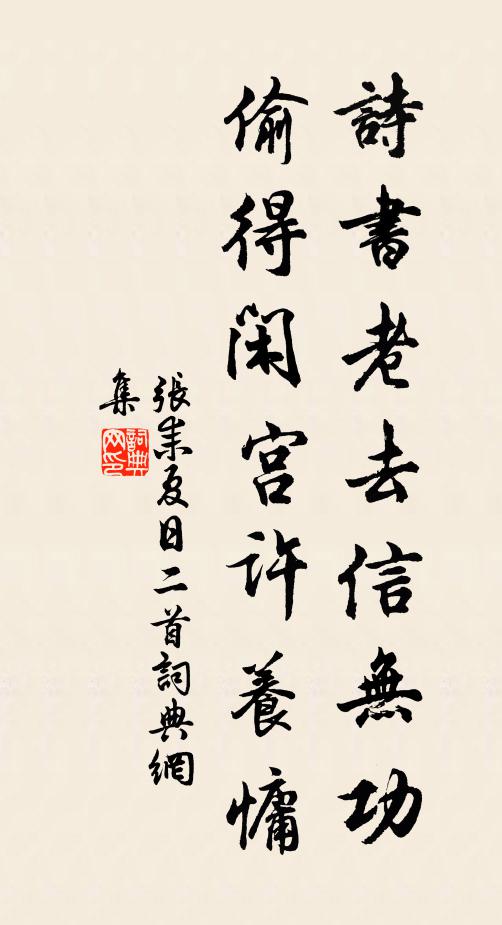 詩書老去信無功
偷得閑宮許養慵
張耒夏日二首詞典網
集
詞典
网印